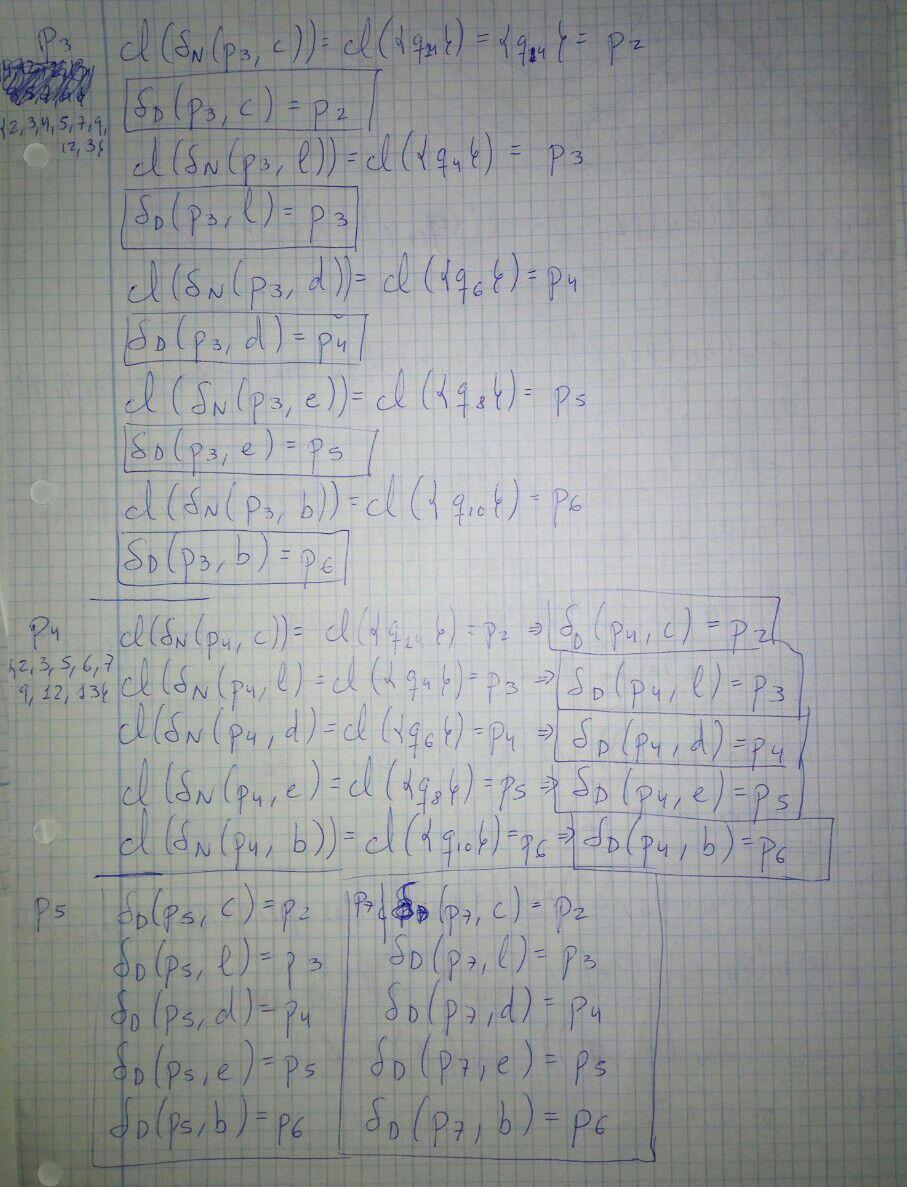 p3 cl(δN(p3, c)) = cl({q14}) = {q14} = p2
δD(p3, c) = p2
{2,3,4,5,7,9,
12,3}
cl(δN(p3, l)) = cl({q4}) = p3
δD(p3, l) = p3
cl(δN(p3, d)) = cl({q6}) = p4
δD(p3, d) = p4
cl(δN(p3, e)) = cl({q8}) = p5
δD(p3, e) = p5
cl(δN(p3, b)) = cl({q10}) = p6
δD(p3, b) = p6
p4 cl(δN(p4, c)) = cl({q14}) = p2 ⇒ δD(p4, c) = p2
{2,3,5,6,7
9,12,13}
cl(δN(p4, l) = cl({q4}) = p3 ⇒ δD(p4, l) = p3
cl(δN(p4, d) = cl({q6}) = p4 ⇒ δD(p4, d) = p4
cl(δN(p4, e) = cl({q8}) = p5 ⇒ δD(p4, e) = p5
cl(δN(p4, b)) = cl({q10}) = p6 ⇒ δD(p4, b) = p6
p5 δD(p5, c) = p2
δD(p5, l) = p3
δD(p5, d) = p4
δD(p5, e) = p5
δD(p5, b) = p6
p7 δD(p7, c) = p2
δD(p7, l) = p3
δD(p7, d) = p4
δD(p7, e) = p5
δD(p7, b) = p6